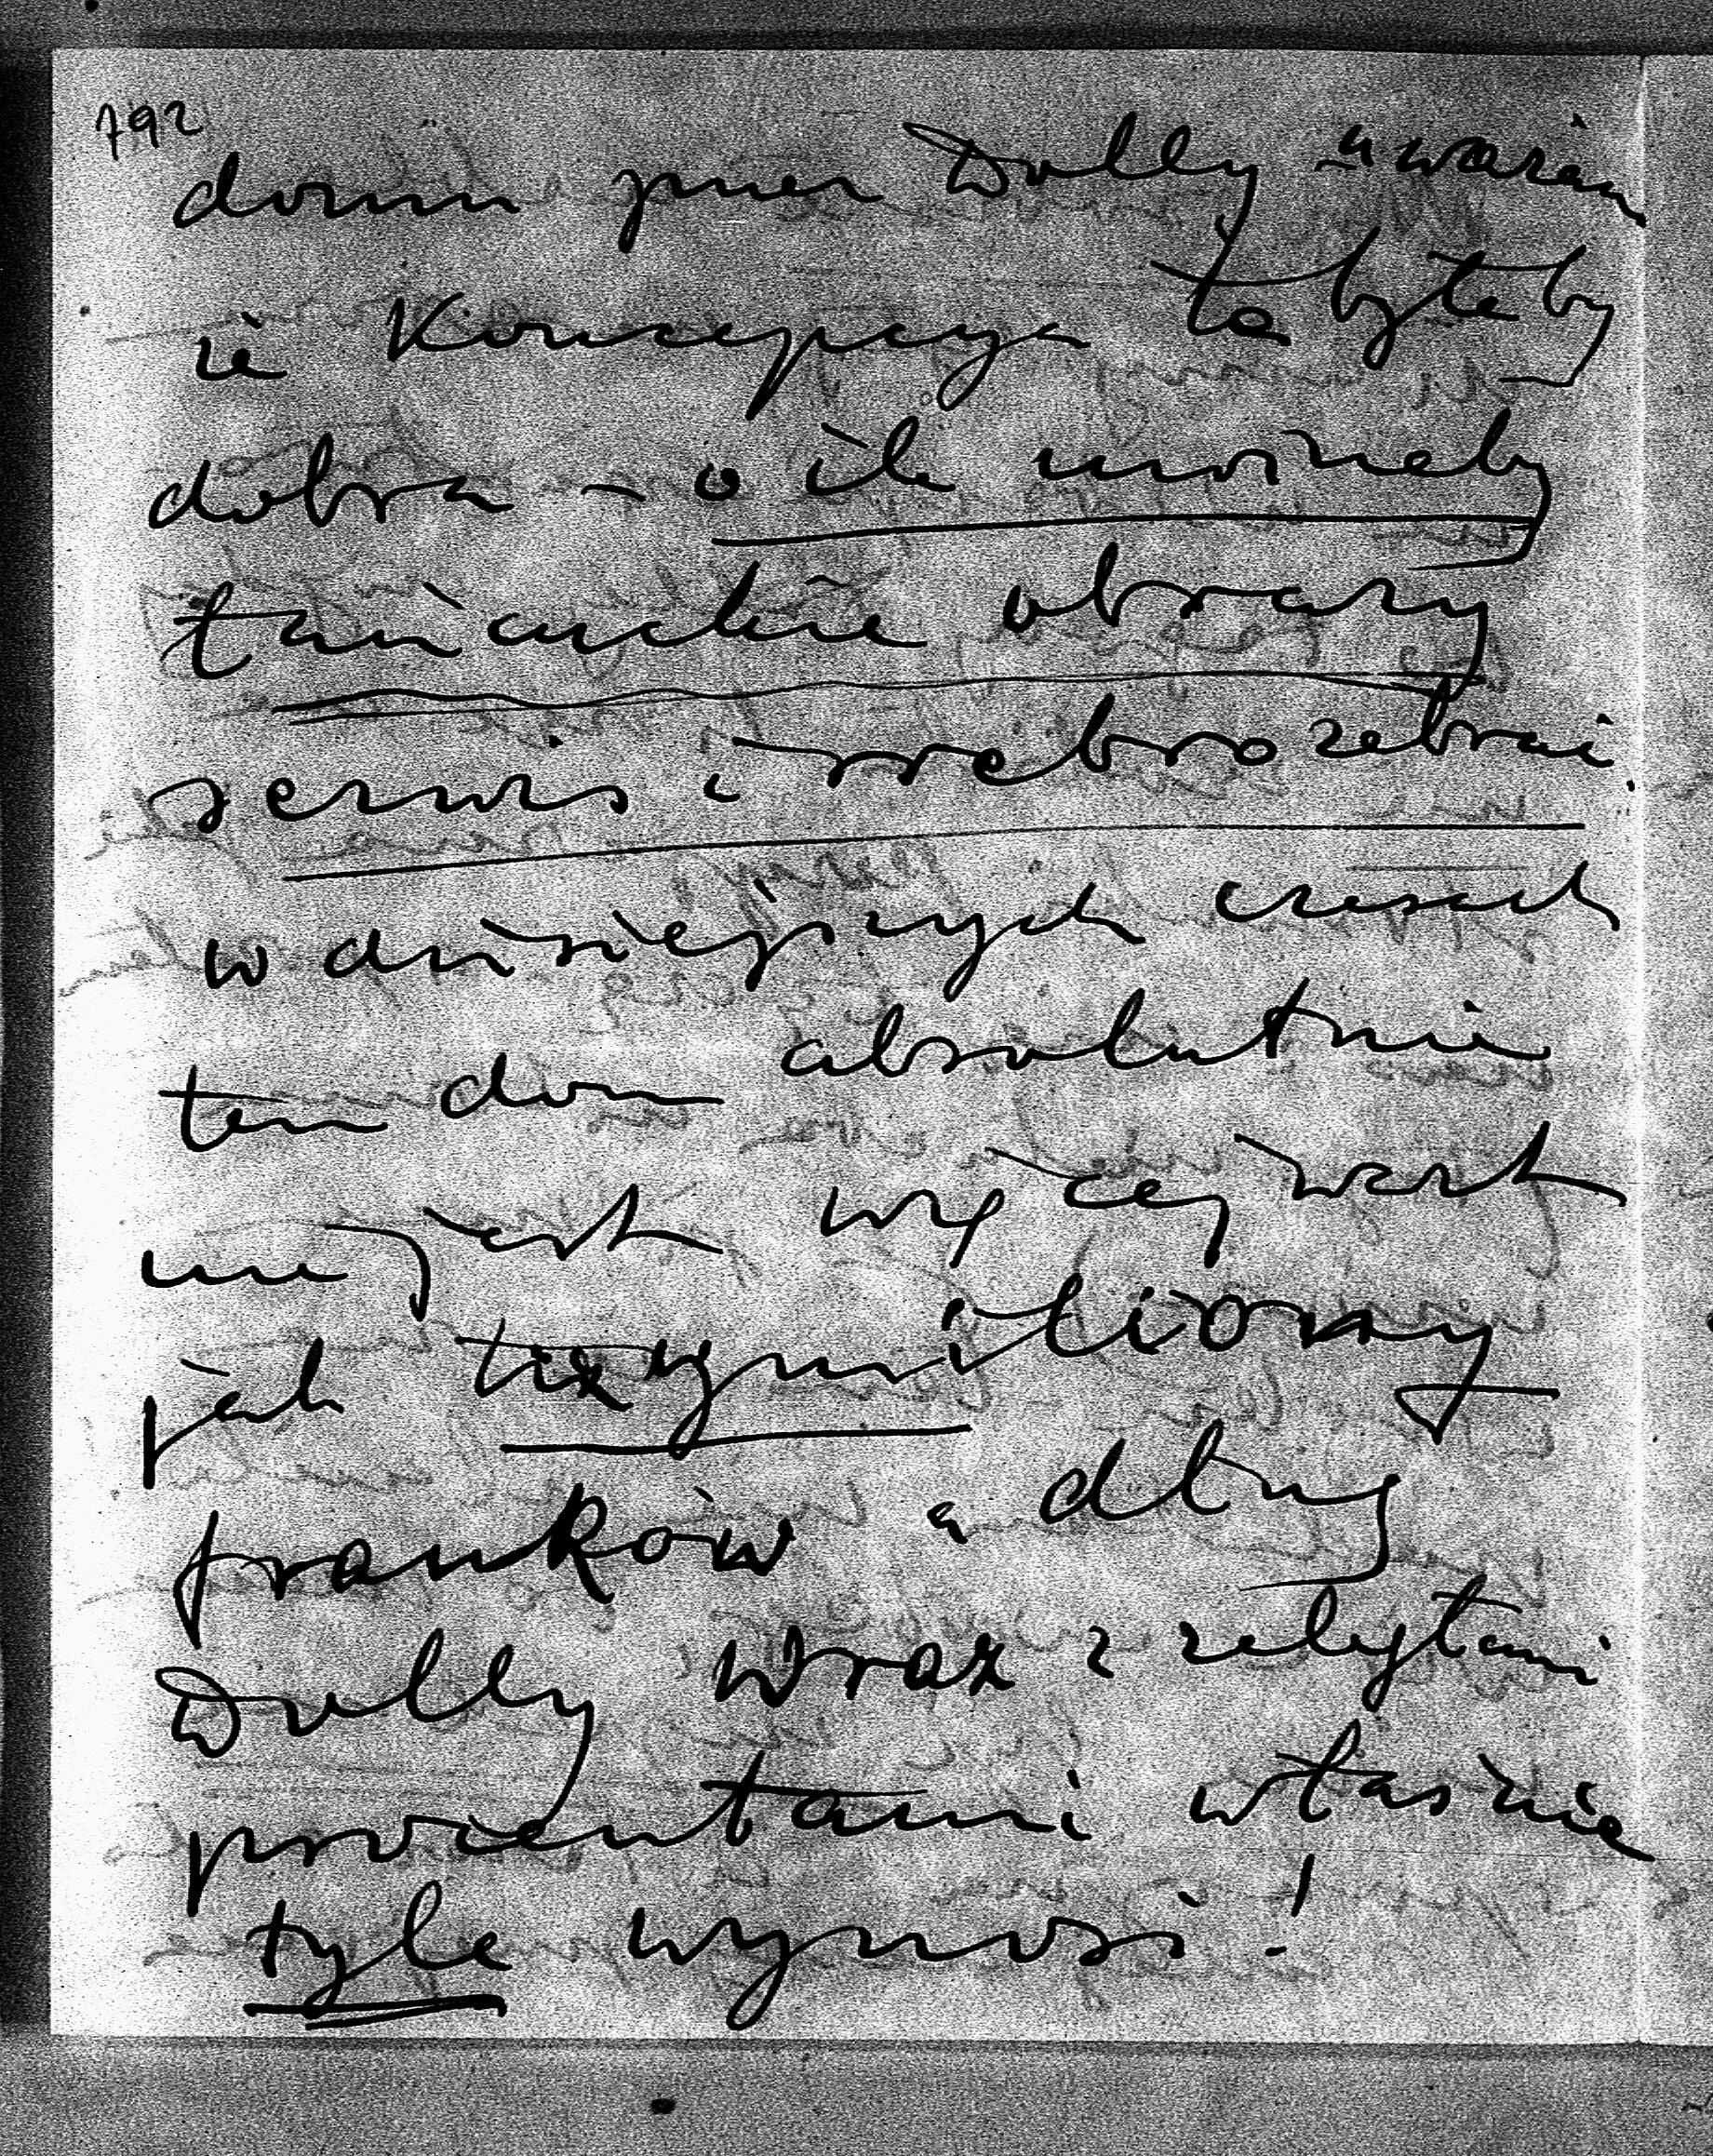 792
domu przez Dolly uważam
że Koncepcya ta byłaby
dobra – o ile możnaby
łańcuckie obrazy
serwis i srebro zebrać.
w dzisiejszych czasach
ten dom absolutnie
nie jest więcej wart
jak trzy miliony
franków a dług
Dolly wraz z zaległymi
procentami właśnie
tyle wynosi!